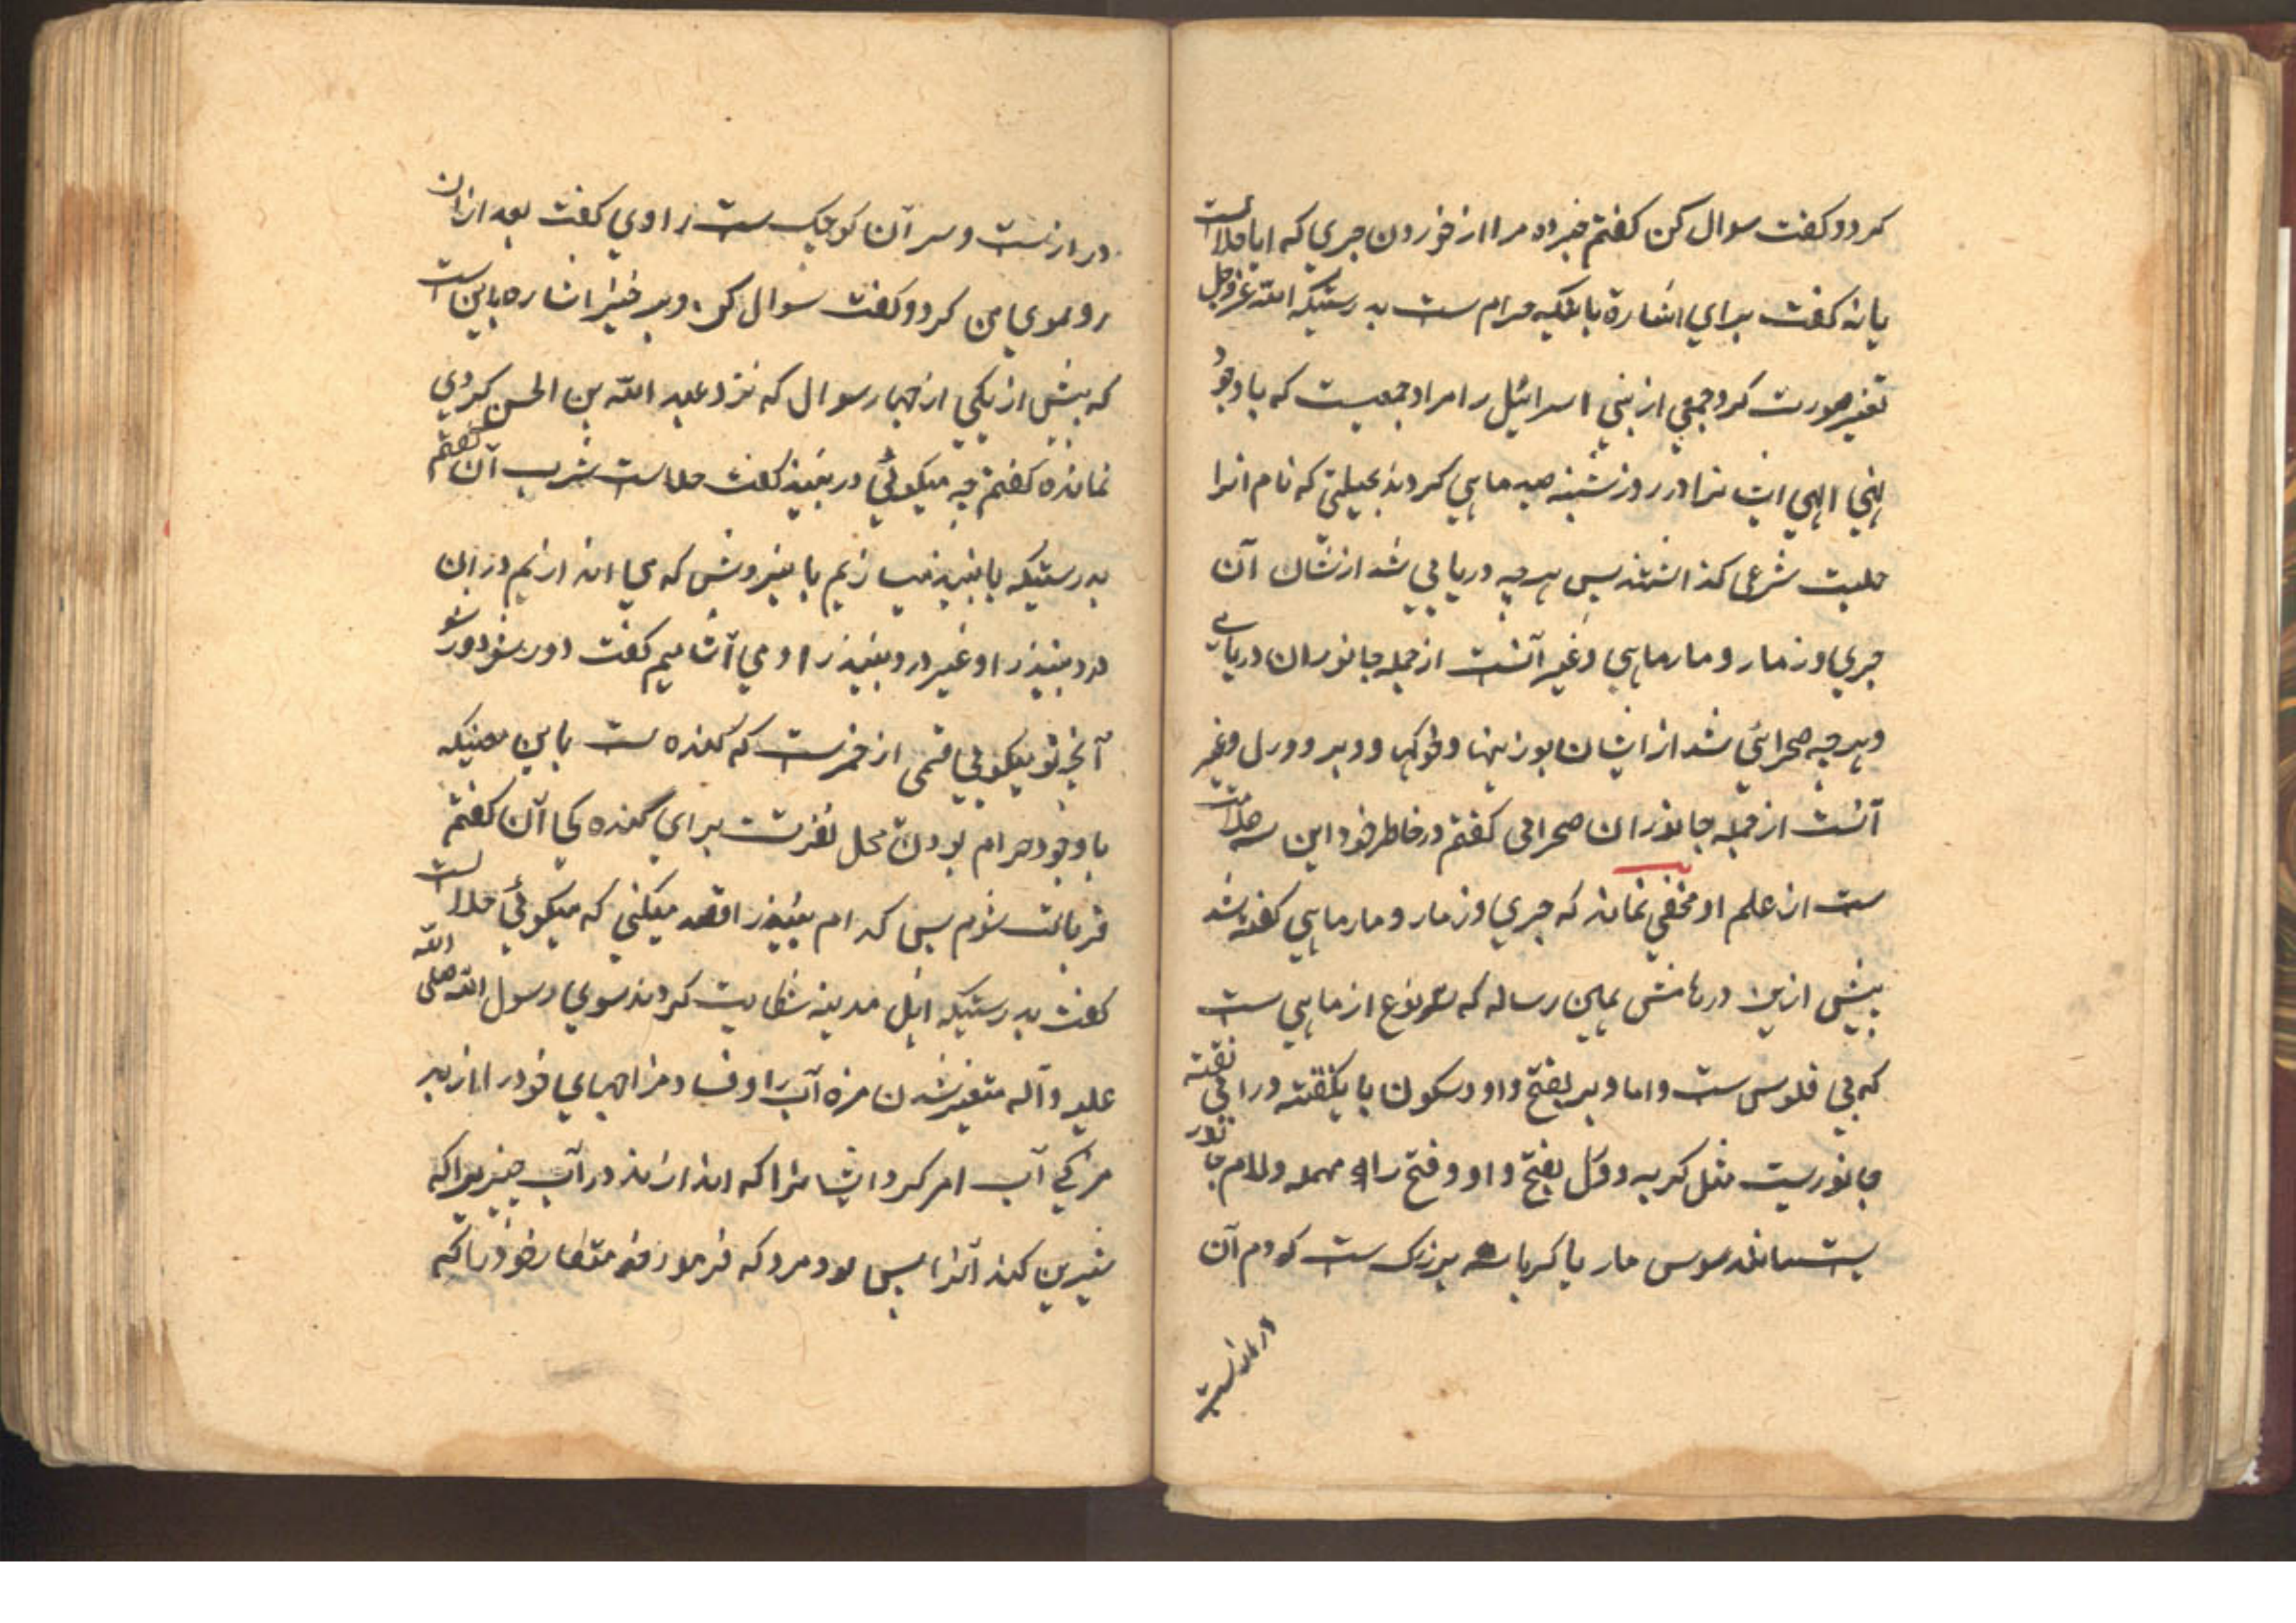 کرد و کفت سوال کن کفتم خبر ده مرا از خوردن جری که ایا حلالست
یا نه کفت برای اشارة بانکه حرام ست بدرستیکه الله عز و جل
تغیر صورت کرد جمعی از بنی اسرائیل را مراد جمعیست که با وجود
نهی الهی ایشانرا در روز شنبه صید ماهی کردند بحیلتی که نام انرا
حلیت شرعی کذاشتند پس هر چه دریایی شد ازیشان آن
جری و زمار و مارماهی و غیر آنست از جمله جانوران دریایی
و هر چه صحرایی شد از ایشان بوزینها و خوکها و وبر و ورل و غیر
آنست از جمله جانوران صحرایی کفتم در خاطر خود این سه علامت
ست از علم او مخفی نماند که جری و زمار و مارماهی کفته شد
پیش ازین در هامش همین رساله که سه نوع از ماهی ست
که بی فلوس ست و اما وبر بفتح واو و سکون با یکنقطه و را بی نقطه
جانوریست مثل کربه و ورل بفتح واو و فتح راء مهمله و لام جانور
یست مانند سوس مار یا کرباسه بزرک ست که دم آن
درازست
درازست و سر آن کوچک ست راوی کفت بعد ازان
رو بسوی من کرد و کفت سوال کن و برخیز اشاره باین ست
که پیش از یکی از چهار سوال که نزد عبد الله بن الحسن کردی
نمانده کفتم چه میکوئی در نبیذ کفت حلالست شرب آن کفتم
بدرستیکه ما نبیذ میسازیم پس می اندازیم در ان
درد نبیذ را و غیر درد نبیذ را و می آشامیم کفت دور شو دور شو
آنچه تو میکویی قسمی از خمرست که کنده ست باین معنیکه
با وجود حرام بودن محل نفرتست برای کنده کی آن کفتم
قربانت شوم پس کدام نبیذ را قصد میکنی که میکوئی حلالست
کفت بدرستیکه اهل مدینه شکایت کردند سوی رسول الله صلی الله
علیه و آله متغیر شدن مزه آب را و فساد مزاجهای خود را از بد
مزکی آب امر کرد ایشانرا که اندازند در آب چیزیرا که
شیرین کند آنرا پس بود مرد که فرمود خدمتکار خود را که